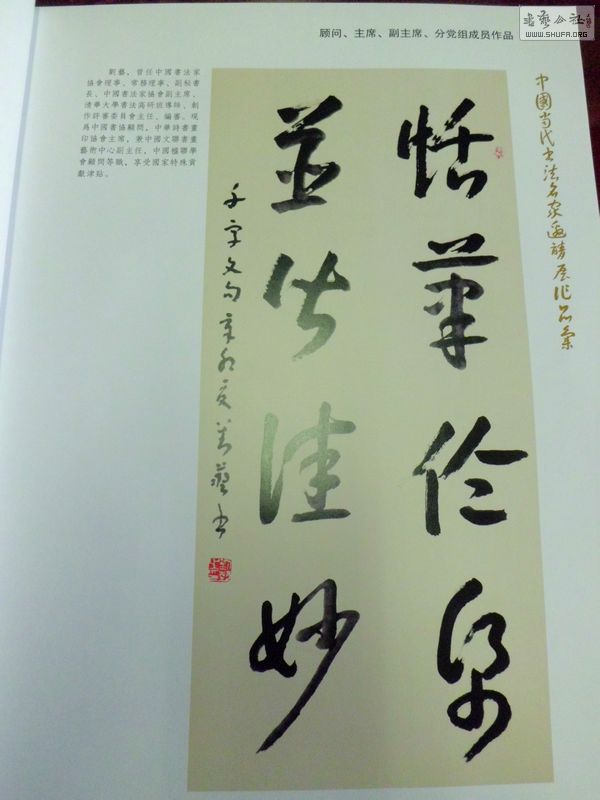 書藝公社
WWW.SHUFA.ORG
顾问、主席、副主席、分党组成员作品
中國當代書法名家邀請展作品集
恬筆倫帋
並皆佳妙
千字文句辛卯夏劉藝書
劉藝，曾任中國書法家
協會理事、常務理事、副秘書
長、中國書法家協會副主席、
清華大學書法高研班導師、創
作評審委員會主任、編審。現
爲中國書協顧問，中華詩書畫
印協會主席，兼中國文聯書畫
藝術中心副主任，中國楹聯學
會顧問等職，享受國家特殊貢
獻津貼。